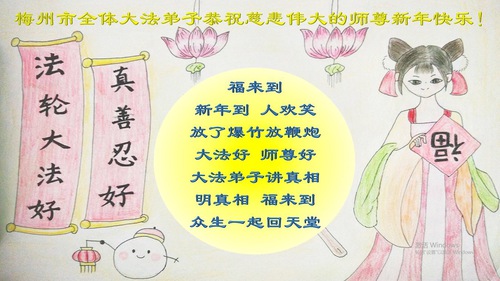 梅州市全体大法弟子恭祝慈悲伟大的师尊新年快乐！
法轮大法好
真善忍好
福来到
新年到 人欢笑
放了爆竹放鞭炮
大法好 师尊好
大法弟子讲真相
明真相 福来到
众生一起回天堂
福
激活 Windows